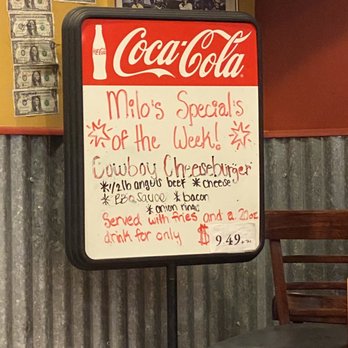 Coca-Cola
Milo's Special's
of the Week!
Cowboy Cheeseburger
*1/2lb anguls beef *cheese
*BBQ Sauce *bacon
*onion ring
Served with fries and a 20oz
drink for only $ 9.49